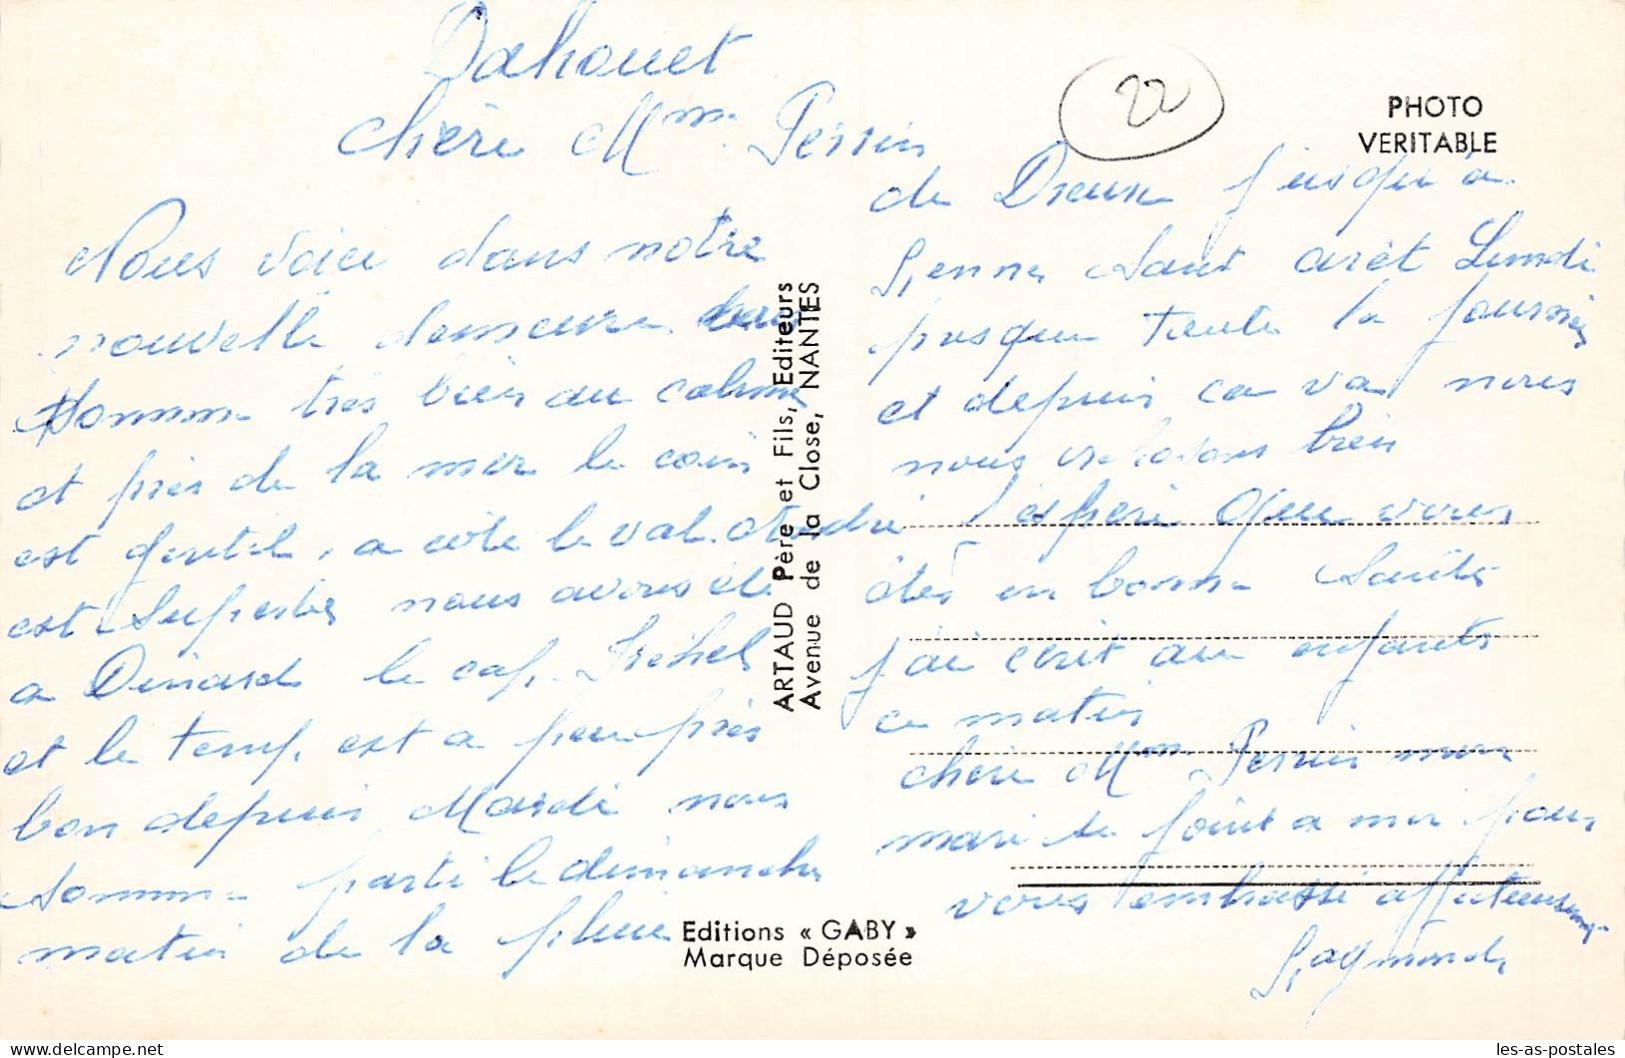 Dahouet
Chère Mme Perrin
Nous voici dans notre
nouvelle demeure nous
somme très bien au calme
et près de la mer le coin
est gentil, a côte le val André
est superbe nous avons été
a Dinard le cap Fréhel
et le temp est a peu près
bon depuis Mardi nous
somme parti le dimanche
matin de la pluie
de Dreux jusqu'a
Rennes sant arêt Lundi
presque toute la journée
et depuis ca va nous
nous reposons bien
j'espère que vous
êtes en bonne santée
j'ai écrit au enfants
ce matin
chère Mme Perrin mon
mari se joint a moi pour
vous embrasse affectueusement
Raymonde
22
PHOTO
VERITABLE
ARTAUD Père et Fils, Editeurs
Avenue de la Close, NANTES
Editions « GABY »
Marque Déposée
les-as-postales